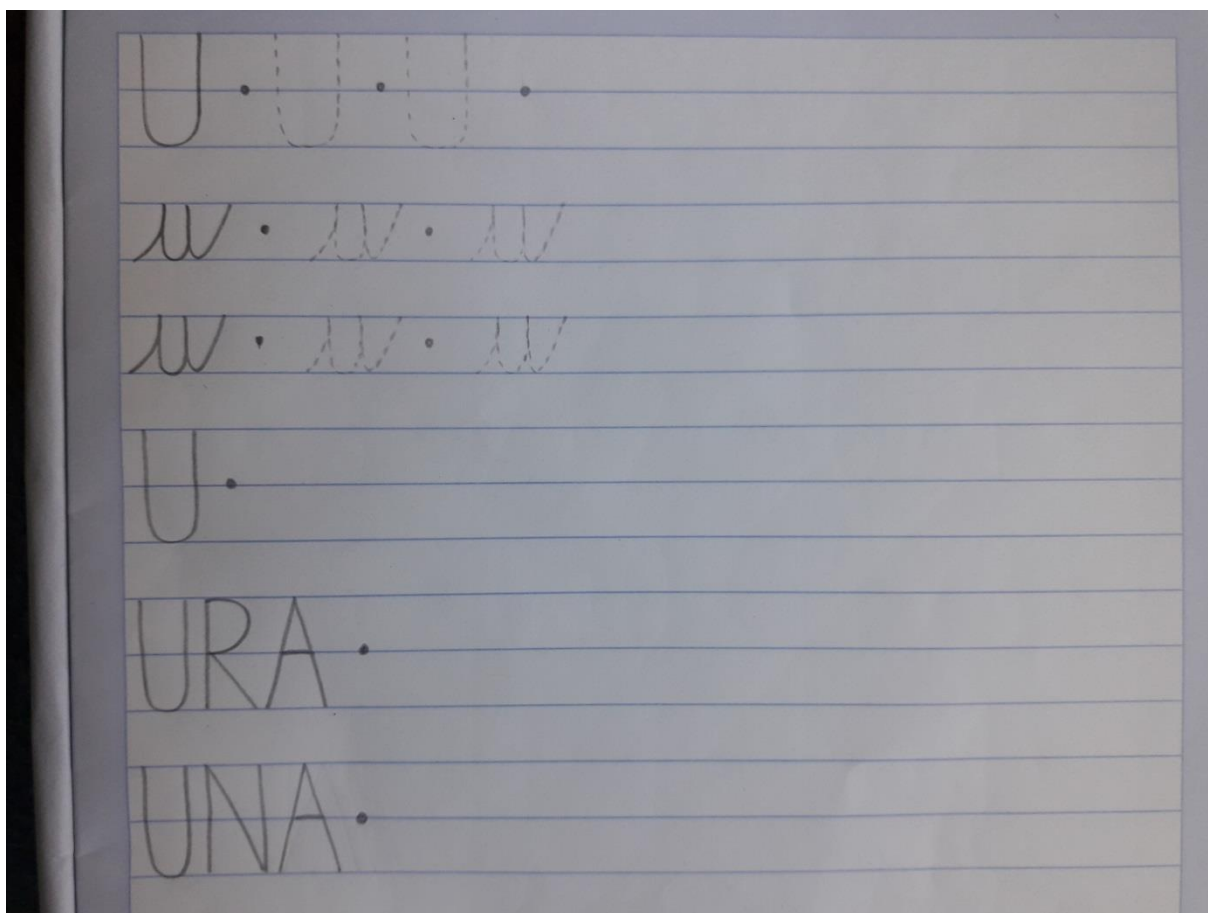 U · U · U ·
u · u · u
u · u · u
U ·
URA ·
UNA ·